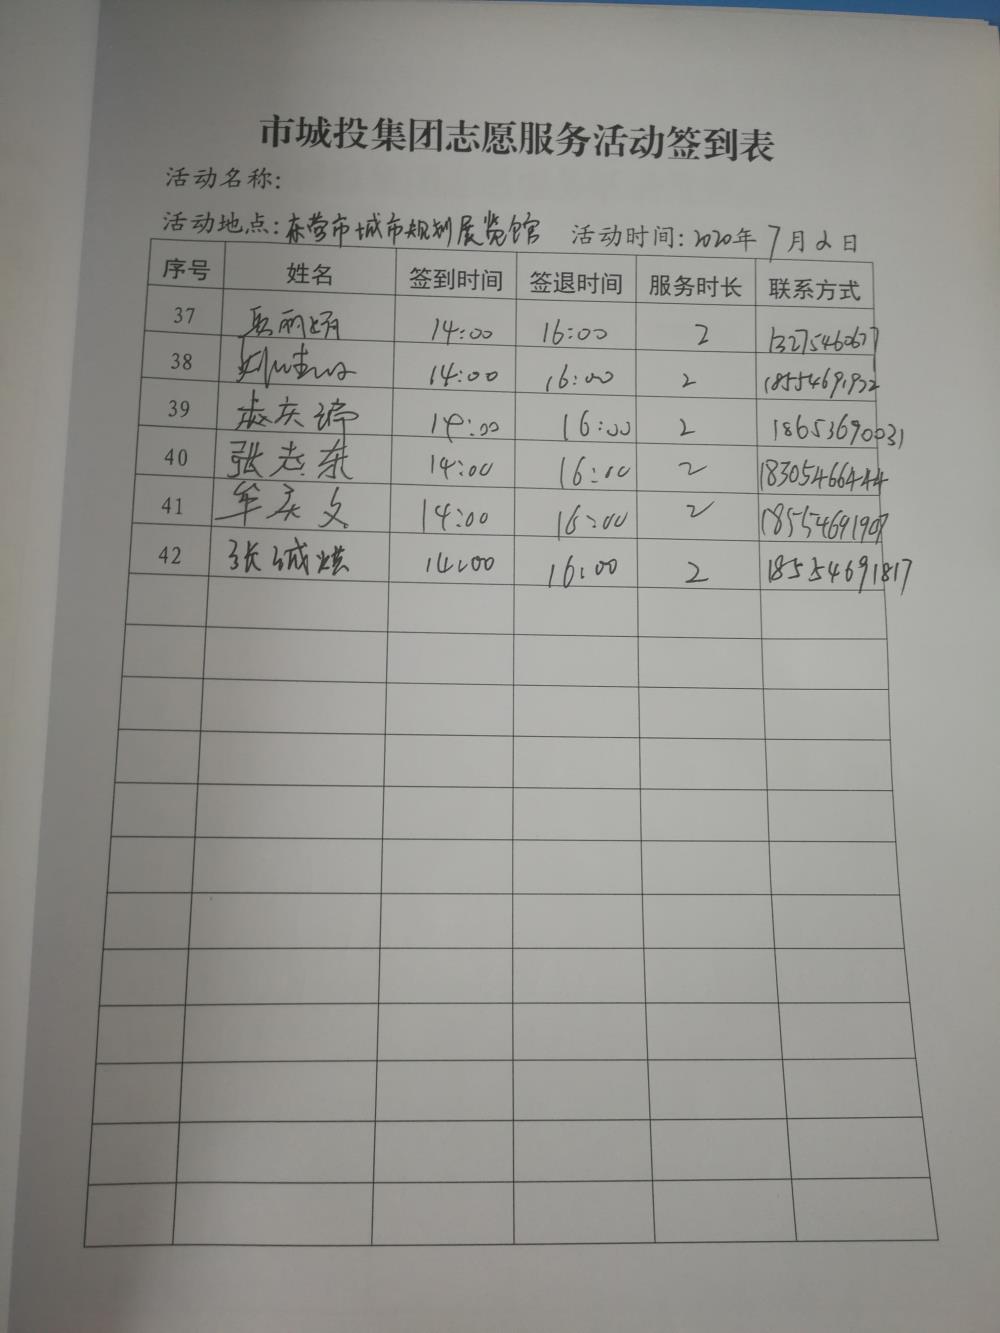 市城投集团志愿服务活动签到表
活动名称:
活动地点:东营市城市规划展览馆 活动时间:2020年7月2日
序号 姓名 签到时间 签退时间 服务时长 联系方式
37 14:00 16:00 2 13275460677
38 14:00 16:00 2 18554691932
39 14:00 16:00 2 18653690031
40 张志东 14:00 16:00 2 18305466444
41 牟庆文 14:00 16:00 2 18554691907
42 张诚洪 14:00 16:00 2 18554691817